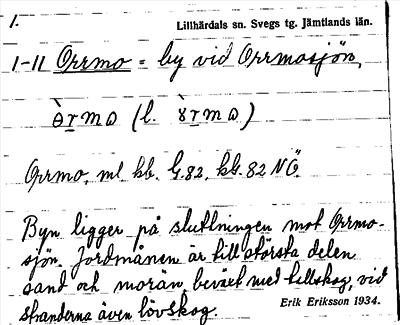 1.
Lillhärdals sn. Svegs tg. Jämtlands län.
1-11 Orrmo = by vid Orrmosjön,
(l.
Orrmo, ml kb. G.82, kb. 82 NÖ.
Byn ligger på sluttningen mot Orrmo-
sjön. Jordmånen är till största delen
sand och morän, beväxt med tallskog, vid
stränderna även lövskog.
Erik Eriksson 1934.